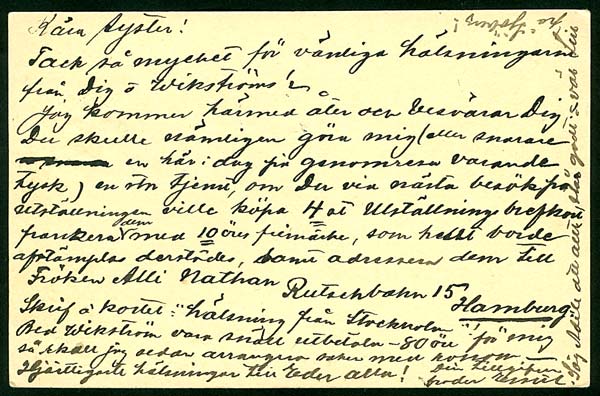 Kära syster!
Tack så mycket för vänliga hälsningarne
från Dig o Wikströms!
Jag kommer härmed åter och besvärar Dig
Du skulle nämligen göra mig (eller snarare
en här i dag på genomresa varande
tysk) en stor tjenst, om Du vid nästa besök på
utställningen ville köpa 4 st Utställningsbrefkort
frankera dem med 10 öres frimärke, som helst borde
afstämplas derstädes, samt adressera dem till
Fröken Alli Nathan
Rutschbahn 15
Hamburg
Skrif å kortet: "hälsning från Stockholm"! för mig
Bed Wikström vara snäll utbetala - 80 öre
så skall jag sedan arrangera saken med honom.
Hjärtligaste hälsningar till Eder alla!
Din tillgifne
broder Ernst